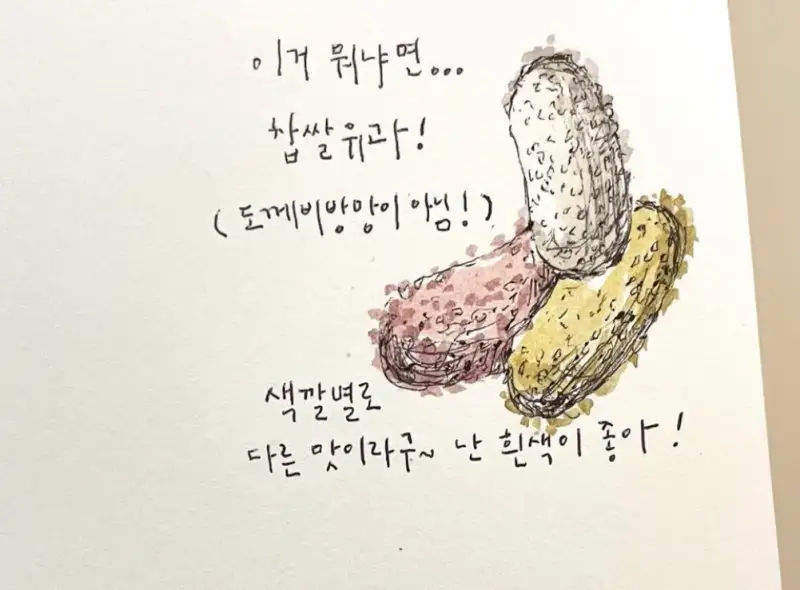 이거 뭐냐면...
찹쌀유과!
(도깨비방망이 아님!)
색깔별로
다른 맛이라구~ 난 흰색이 좋아!